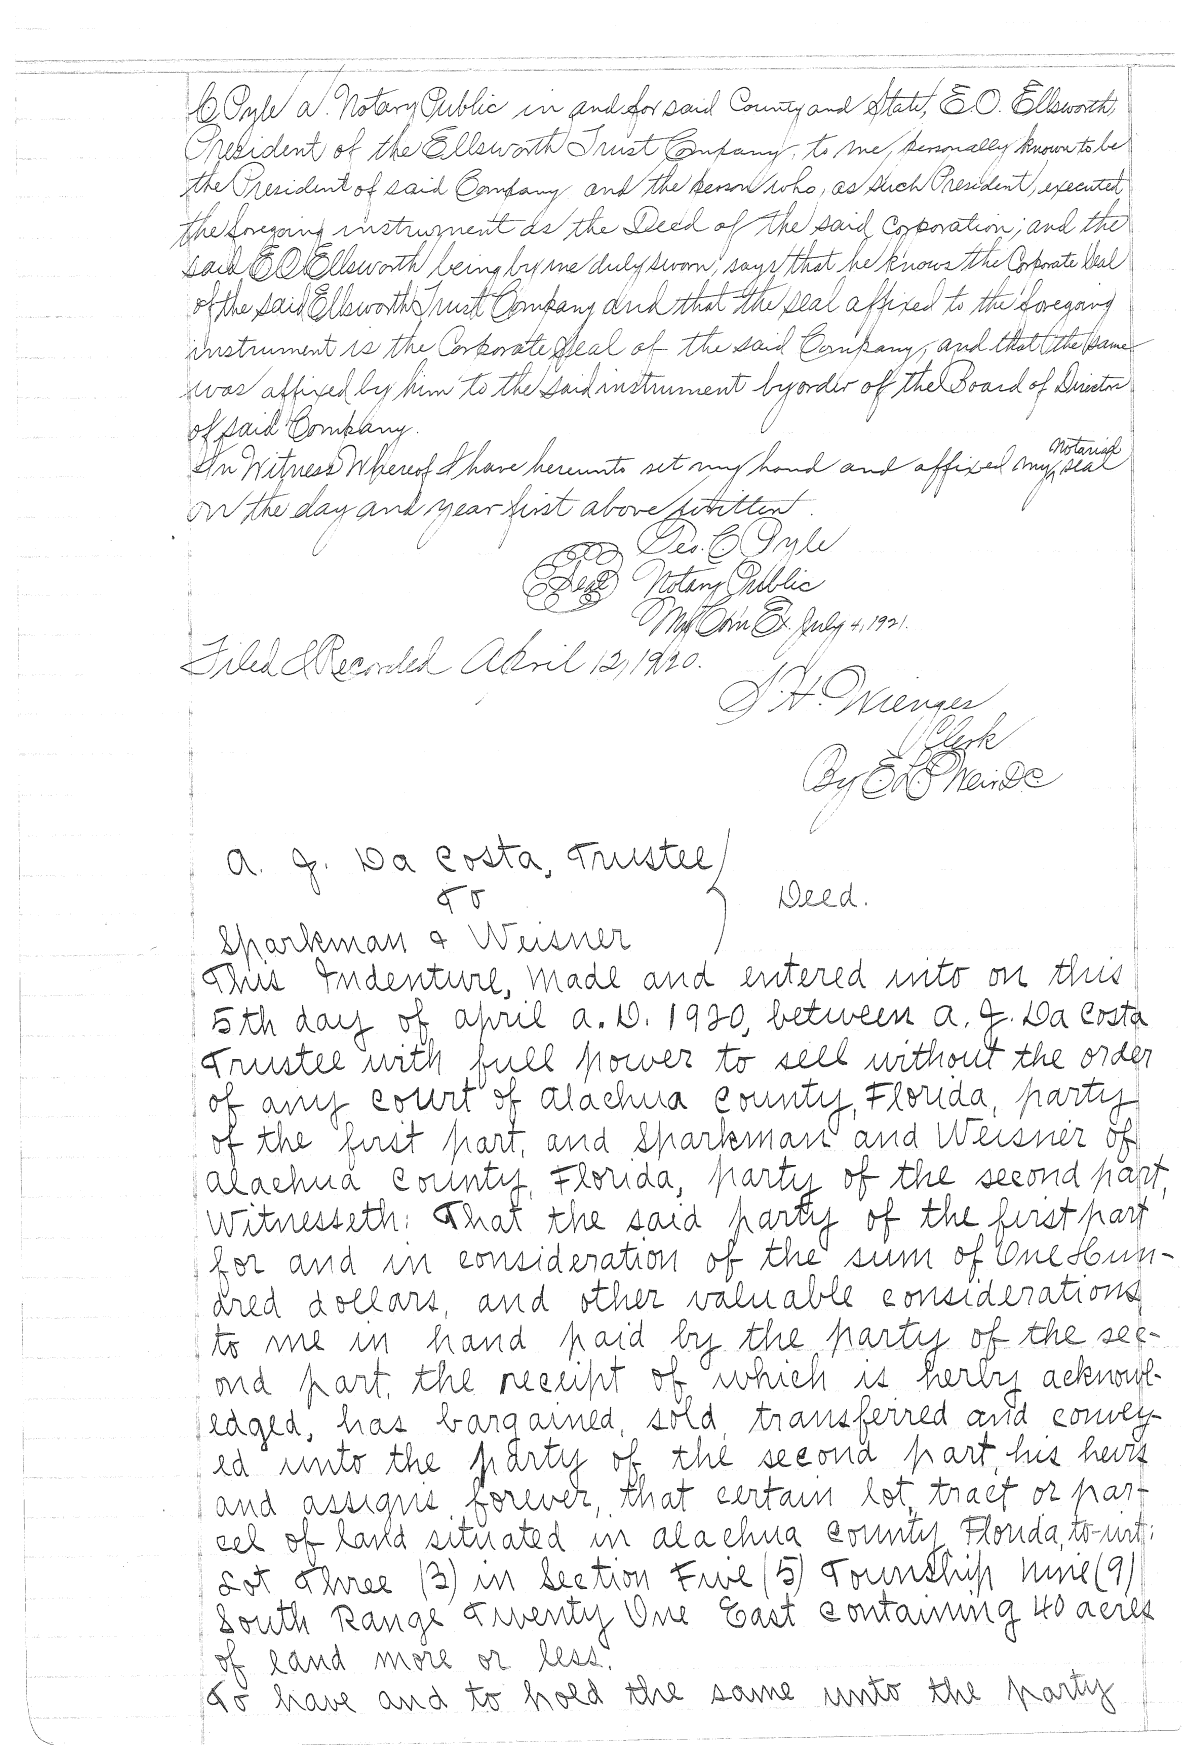 C Pyle a Notary Public in and for said County and State, E.O. Ellsworth,
President of the Ellsworth Trust Company, to me, personally known to be
the President of said Company and the person who, as such President, executed
the foregoing instrument as the Deed of the said Corporation; and the
said E O Ellsworth being by me duly sworn, says that he knows the Corporate Seal
of the said Ellsworth Trust Company and that the seal affixed to the foregoing
instrument is the Corporate Seal of the said Company, and that the same
was affixed by him to the said instrument by order of the Board of Director
of said Company.
In Witness Whereof I have hereunto set my hand and affixed my Notarial seal
on the day and year first above written.
Geo. C Pyle
Seal Notary Public
My Com Ex. July 4, 1921.
Filed & Recorded April 12, 1920.
S. H. Wienges
Clerk
By E L Weir D.C.
A. J. Da Costa, Trustee
To
Deed.
Sparkman & Weisner
This Indenture, Made and entered into on this
5th day of april a.D. 1920, between A. J. Da Costa
Trustee with full power to sell without the order
of any court of Alachua County, Florida, party
of the first part, and Sparkman and Weisner of
Alachua County, Florida, party of the second part,
Witnesseth: That the said party of the first part
for and in consideration of the sum of One Hun-
dred dollars, and other valuable considerations
to me in hand paid by the party of the sec-
ond part, the receipt of which is herby acknowl-
edged, has bargained, sold, transferred and convey-
ed unto the party of the second part, his heirs
and assigns forever, that certain lot, tract or par-
cel of land situated in Alachua County, Florida, to-wit:
Lot Three (3) in Section Five (5) Township Nine (9)
South Range Twenty One East containing 40 acres
of land more or less.
To have and to hold the same unto the party